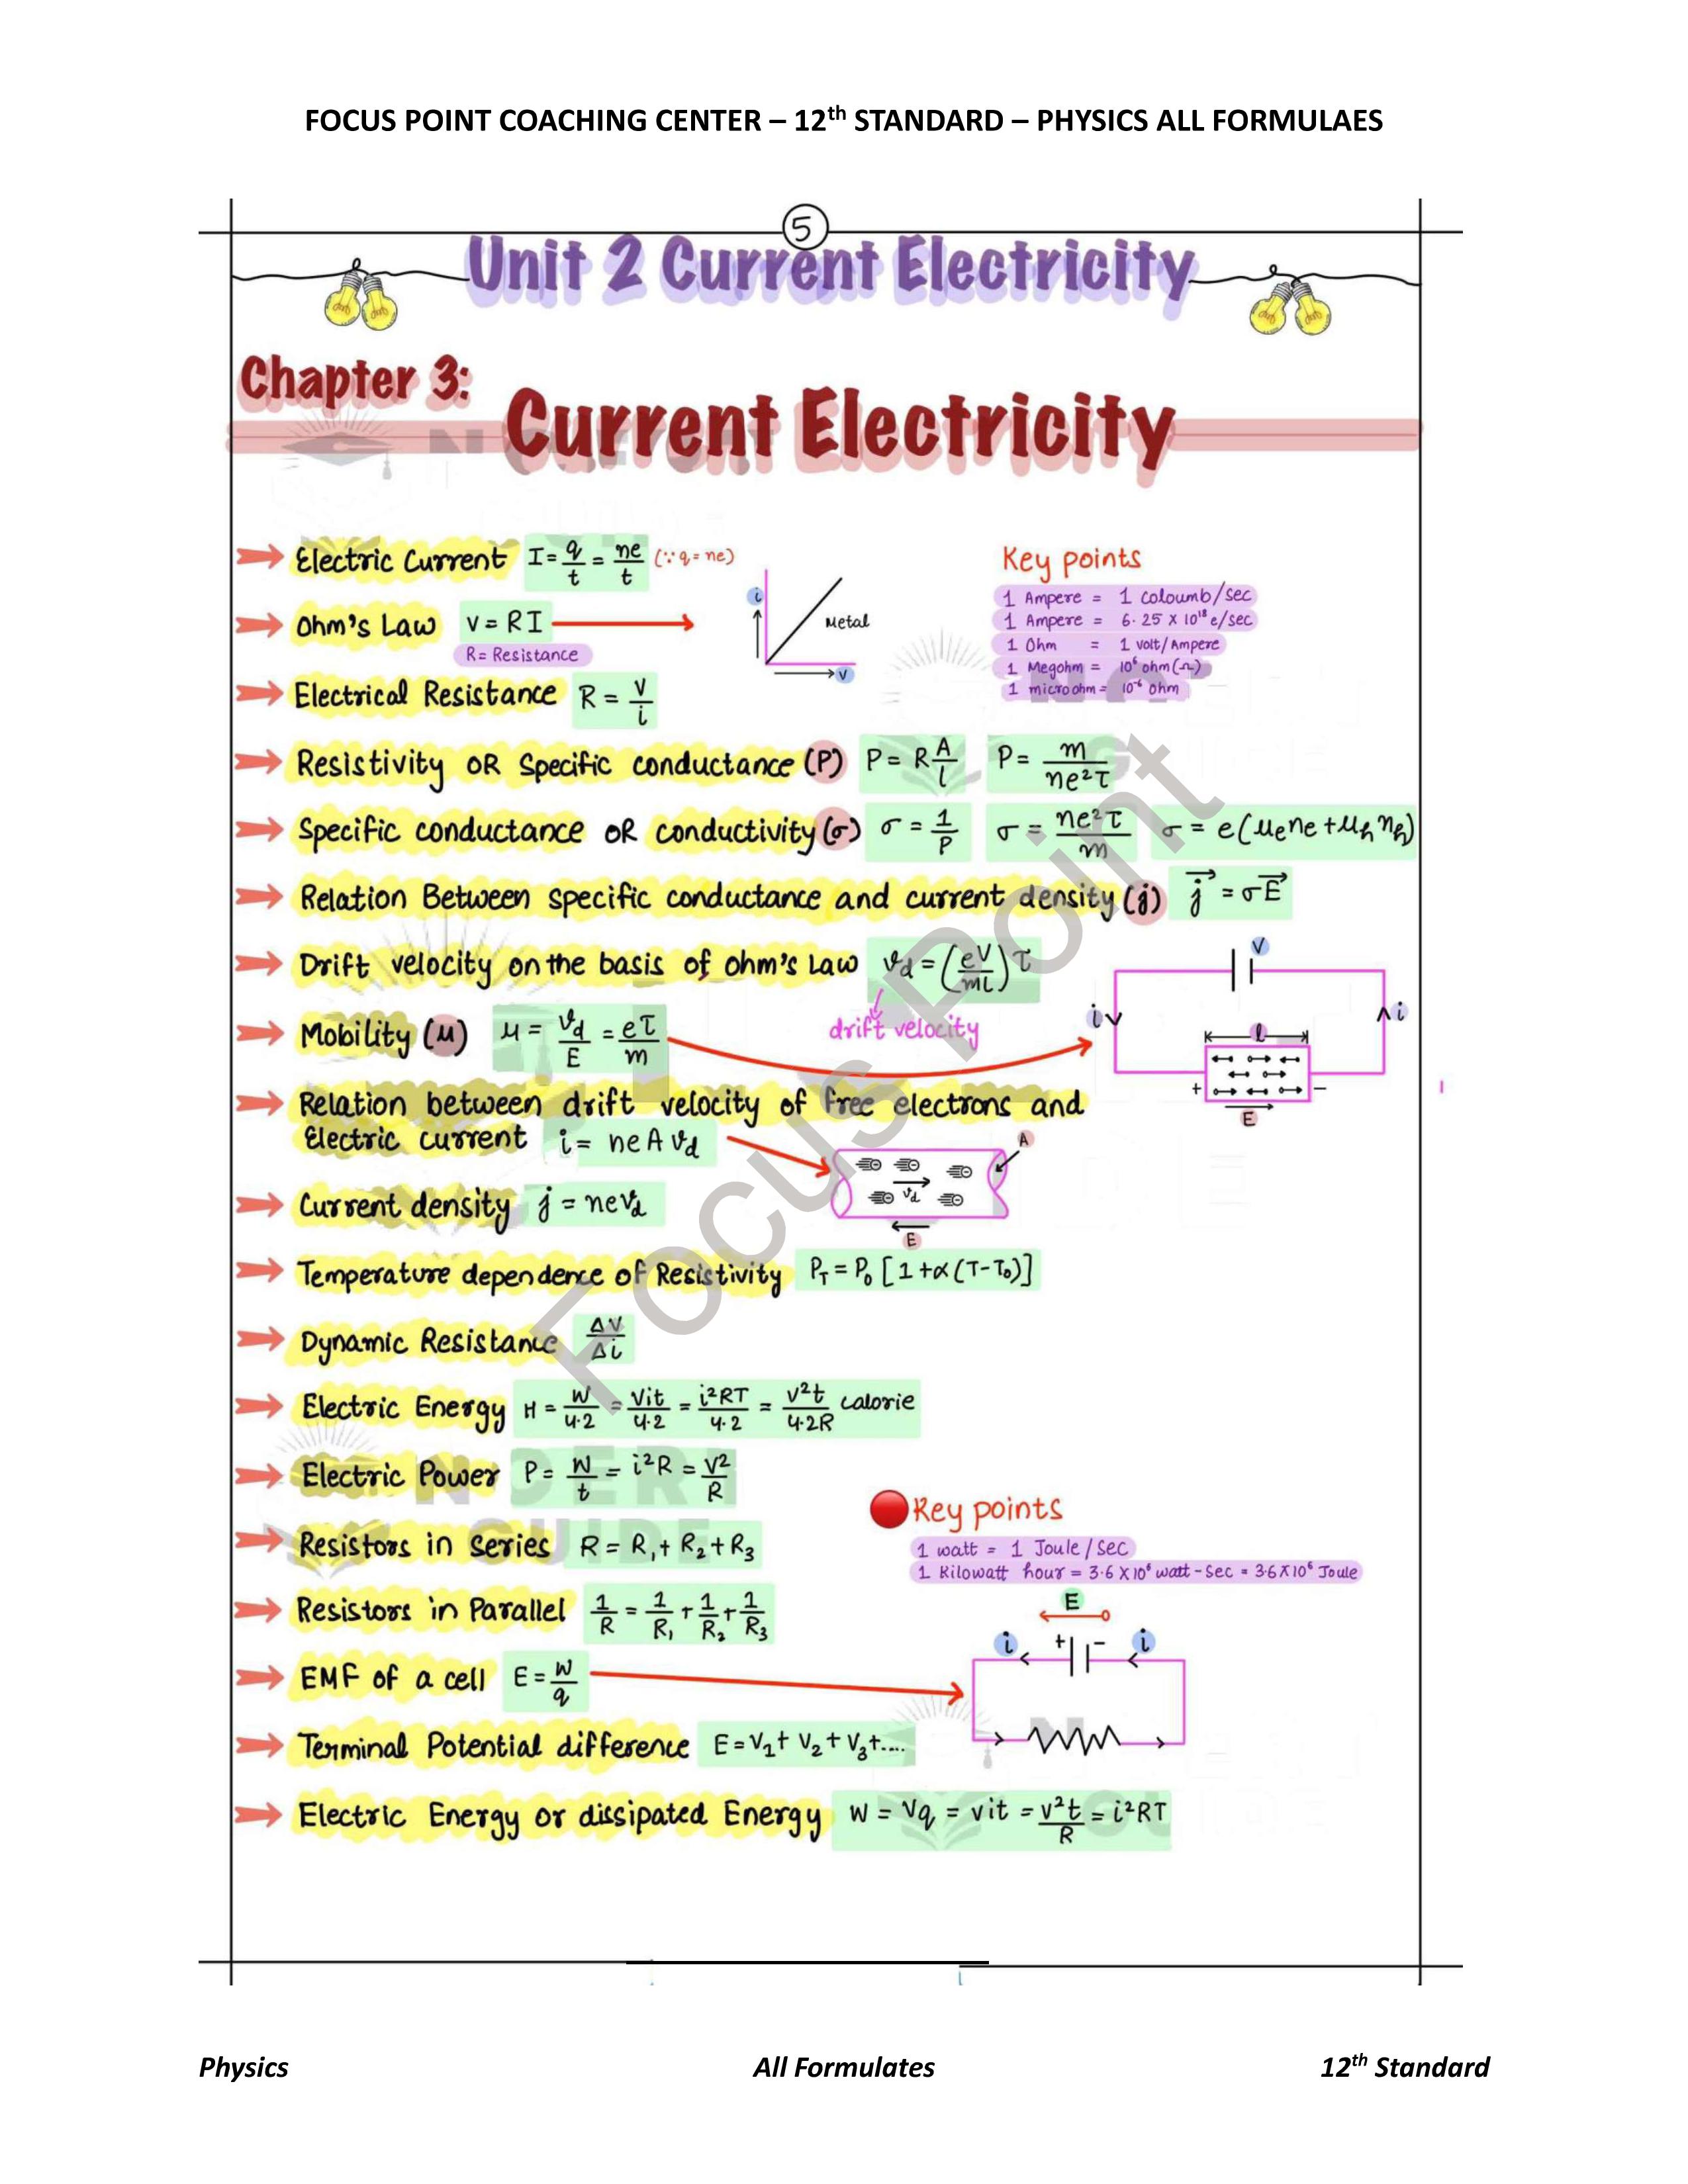 FOCUS POINT COACHING CENTER – 12th STANDARD – PHYSICS ALL FORMULAES
5
Unit 2 Current Electricity
Chapter 3:
Current Electricity
Electric Current I = q/t = ne/t (∵ q = ne)
Ohm's Law V = RI
R = Resistance
i
Metal
V
Key points
1 Ampere = 1 coloumb/sec
1 Ampere = 6.25 X 10¹⁸ e/sec
1 Ohm = 1 volt/Ampere
1 Megohm = 10⁶ ohm (Ω)
1 microohm = 10⁻⁶ ohm
Electrical Resistance R = V/i
Resistivity OR Specific conductance (P) P = R A/l P = m/ne²τ
Specific conductance OR conductivity (σ) σ = 1/P σ = ne²τ/m σ = e(μₑnₑ + μₕnₕ)
Relation Between specific conductance and current density (j) j⃗ = σE⃗
Drift velocity on the basis of ohm's Law vd = (eV/ml) τ
drift velocity
Mobility (μ) μ = vd/E = eτ/m
V
i
i
l
+ −
E
Relation between drift velocity of free electrons and
Electric current i = neAvd
A
vd
E
Current density j = nevd
Temperature dependence of Resistivity P_T = P₀ [1 + α (T - T₀)]
Dynamic Resistance ΔV/Δi
Electric Energy H = W/4.2 = Vit/4.2 = i²RT/4.2 = V²t/4.2R calorie
Electric Power P = W/t = i²R = V²/R
Key points
1 watt = 1 Joule/sec
1 Kilowatt hour = 3.6 X 10⁶ watt-sec = 3.6 X 10⁶ Joule
Resistors in series R = R₁ + R₂ + R₃
Resistors in Parallel 1/R = 1/R₁ + 1/R₂ + 1/R₃
EMF of a cell E = W/q
E
i + − i
Terminal Potential difference E = V₁ + V₂ + V₃ + ....
Electric Energy or dissipated Energy W = Vq = vit = v²t/R = i²RT
Focus Point
NCERT
GUIDE
Physics All Formulates 12th Standard